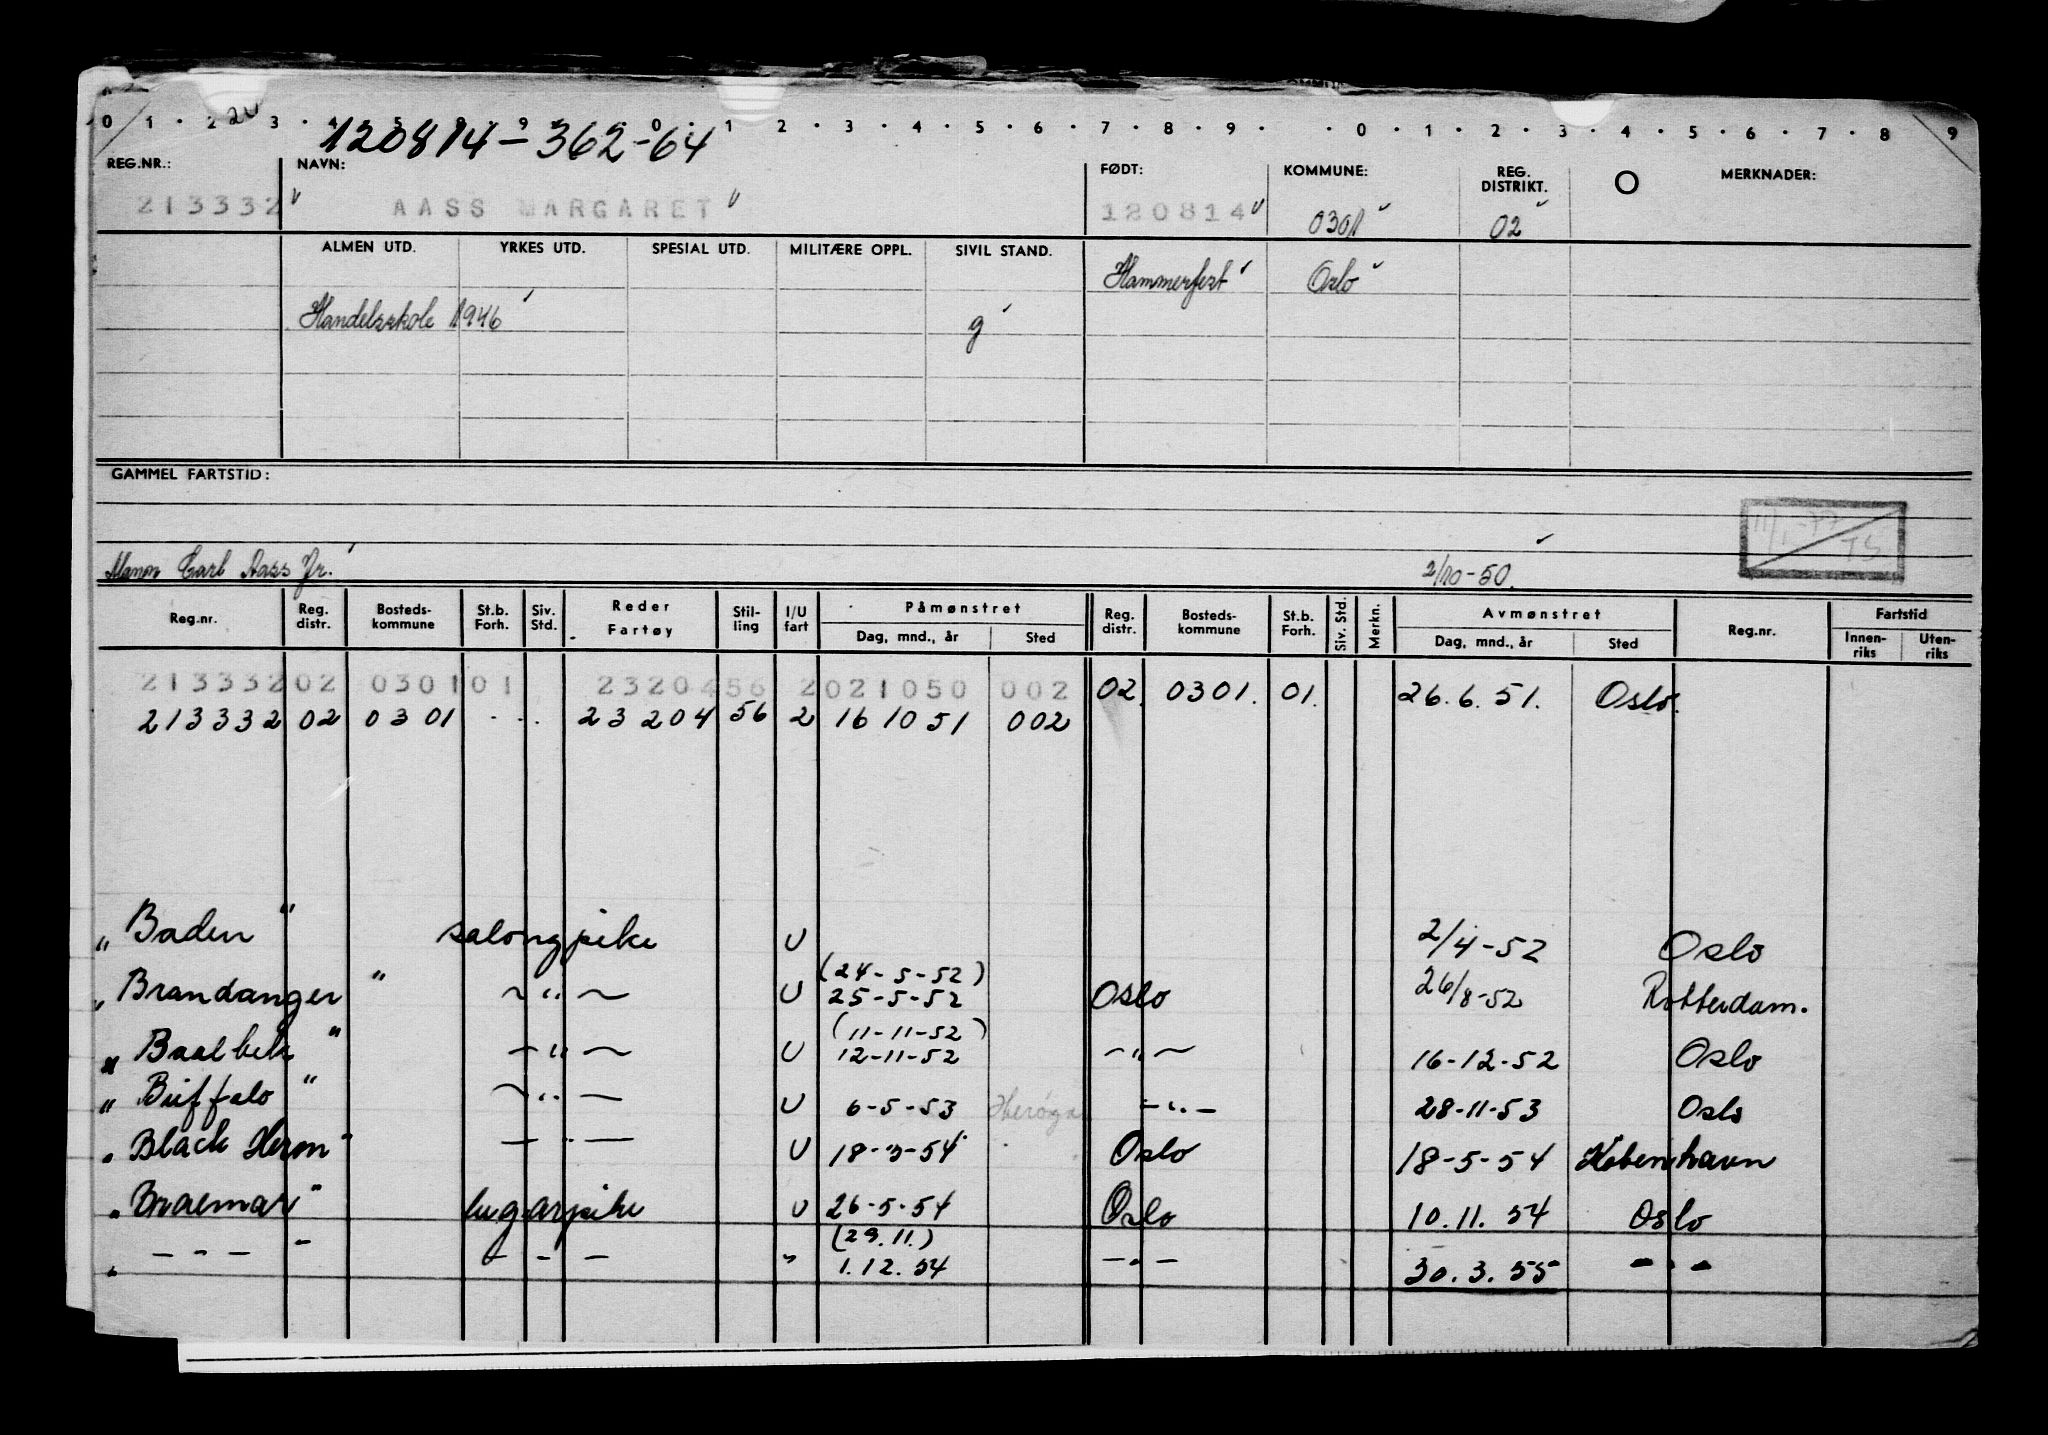 0 1 . 2 . 3 . 4 . 5 . 8 . 9 . 0 . 1 . 2 . 3 . 4 . 5 . 6 . 7 . 8 . 9 . . 0 . 1 . 2 . 3 . 4 . 5 . 6 . 7 . 8 . 9
120814-362-64
REG.NR.: NAVN: FØDT: KOMMUNE: REG. DISTRIKT. O MERKNADER:
213332 AASS MARGARET 120814 0301 02
ALMEN UTD. YRKES UTD. SPESIAL UTD. MILITÆRE OPPL. SIVIL STAND. Hammerfest Oslo
Handelsskole 1946 g
GAMMEL FARTSTID:
TS
Mann Carl Aass Jr. 2/10-50.
Reg.nr. Reg. distr. Bosteds-kommune St.b. Forh. Siv. Std. Reder Fartøy Stil-ling I/U fart Påmønstret Reg. distr. Bosteds-kommune St.b. Forh. Siv. Std. Merkn. Avmønstret Reg.nr. Fartstid
Dag, mnd., år Sted Dag, mnd., år Sted Innen-riks Uten-riks
213332 02 0301 01 23204 56 2 021050 002 02 0301. 01. 26.6.51. Oslo.
213332 02 0301 - . . 23204 56 2 161051 002
"Baden" salongpike U 2/4-52 Oslo
(24-5-52)
"Brandanger" ~ " ~ U 25-5-52 Oslo 26/8-52 Rotterdam.
(11-11-52)
"Baalbek" - " - U 12-11-52 - " - 16-12-52 Oslo
"Buffalo" ~ " - U 6-5-53 Herøya - " - 28-11-53 Oslo
"Black Heron" - . - U 18-3-54 Oslo 18-5-54 København
"Braemar" lugarpike U 26-5-54 Oslo 10.11.54 Oslo
(29.11.)
" - - - " - - - " 1.12.54 - " - 30.3.55 - " -